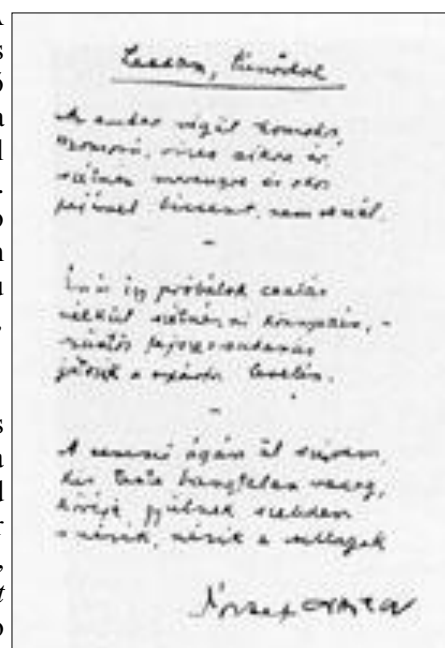 Lassan, tünődve
Az ember végül homokos,
szomorú, vizes síkra ér,
szétnéz merengve és okos
fejével biccent, nem remél.
–
Én is így próbálok csalás
nélkül szétnézni könnyedén, –
ezüstös fejszesuhanás
játszik a nyárfa levelén.
–
A semmi ágán ül szivem,
kis teste hangtalan vacog,
köréje gyűlnek szeliden
s nézik, nézik a csillagok
József Attila